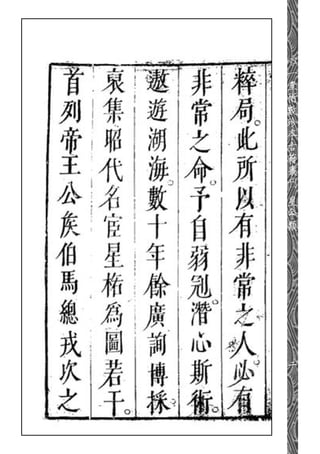 粹局。此所以有非常之人。必有
非常之命。予自弱冠。潛心斯術。
遨遊湖海。數十年餘。廣詢博採
裒集昭代名宦星格為圖若干。
首列帝王公矦伯馬總戎次之